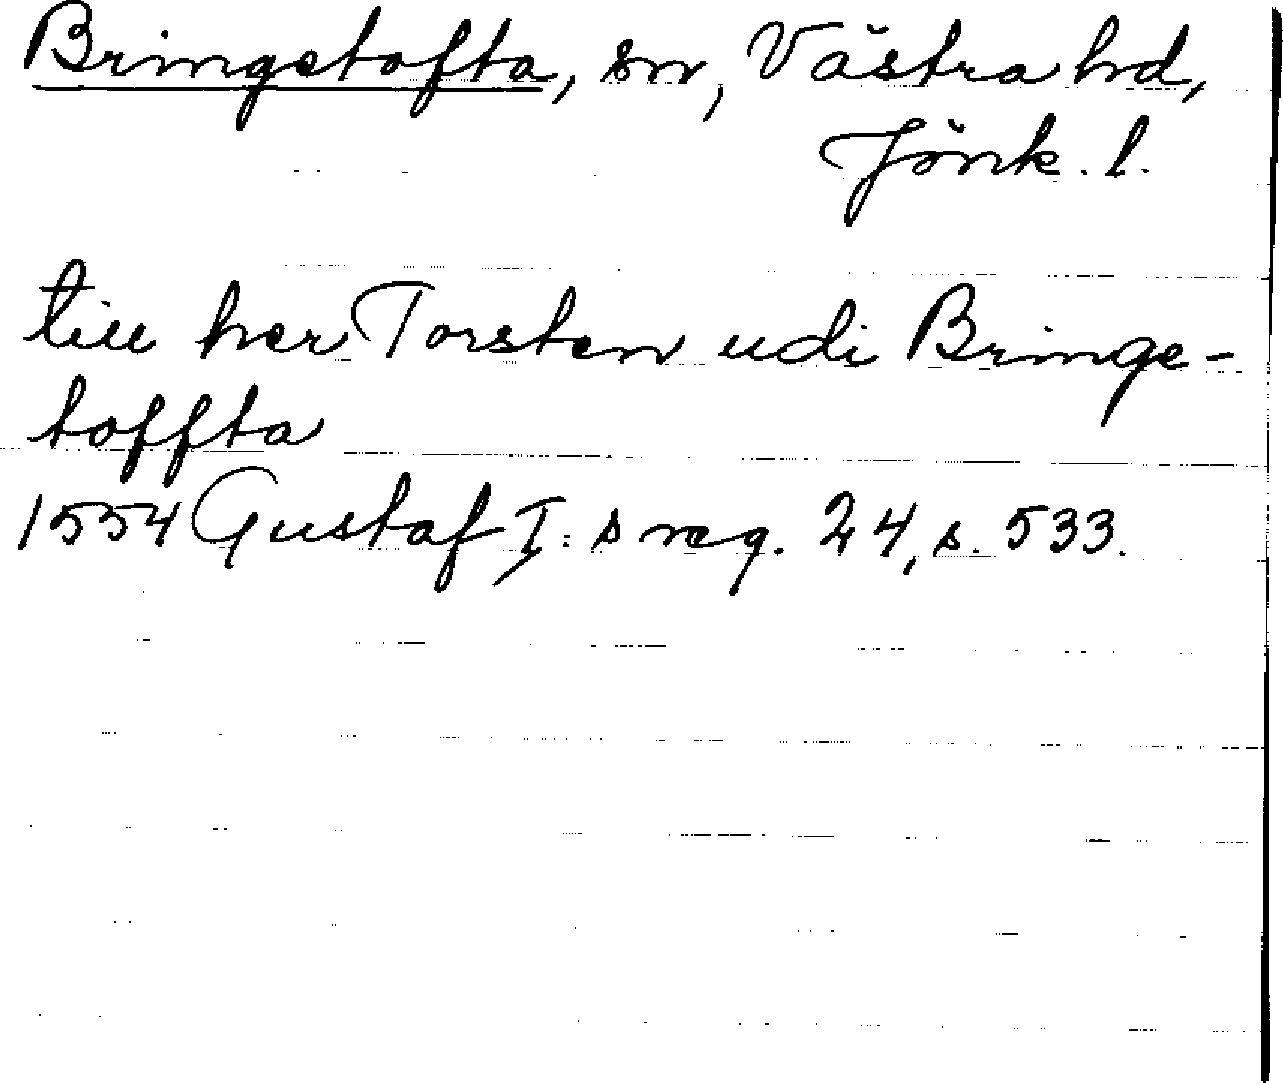 Bringetofta, sn, Västra hd,
Jönk. l.
till her Torsten udi Bringe-
toffta
1554 Gustaf I:s reg. 24, s. 533.